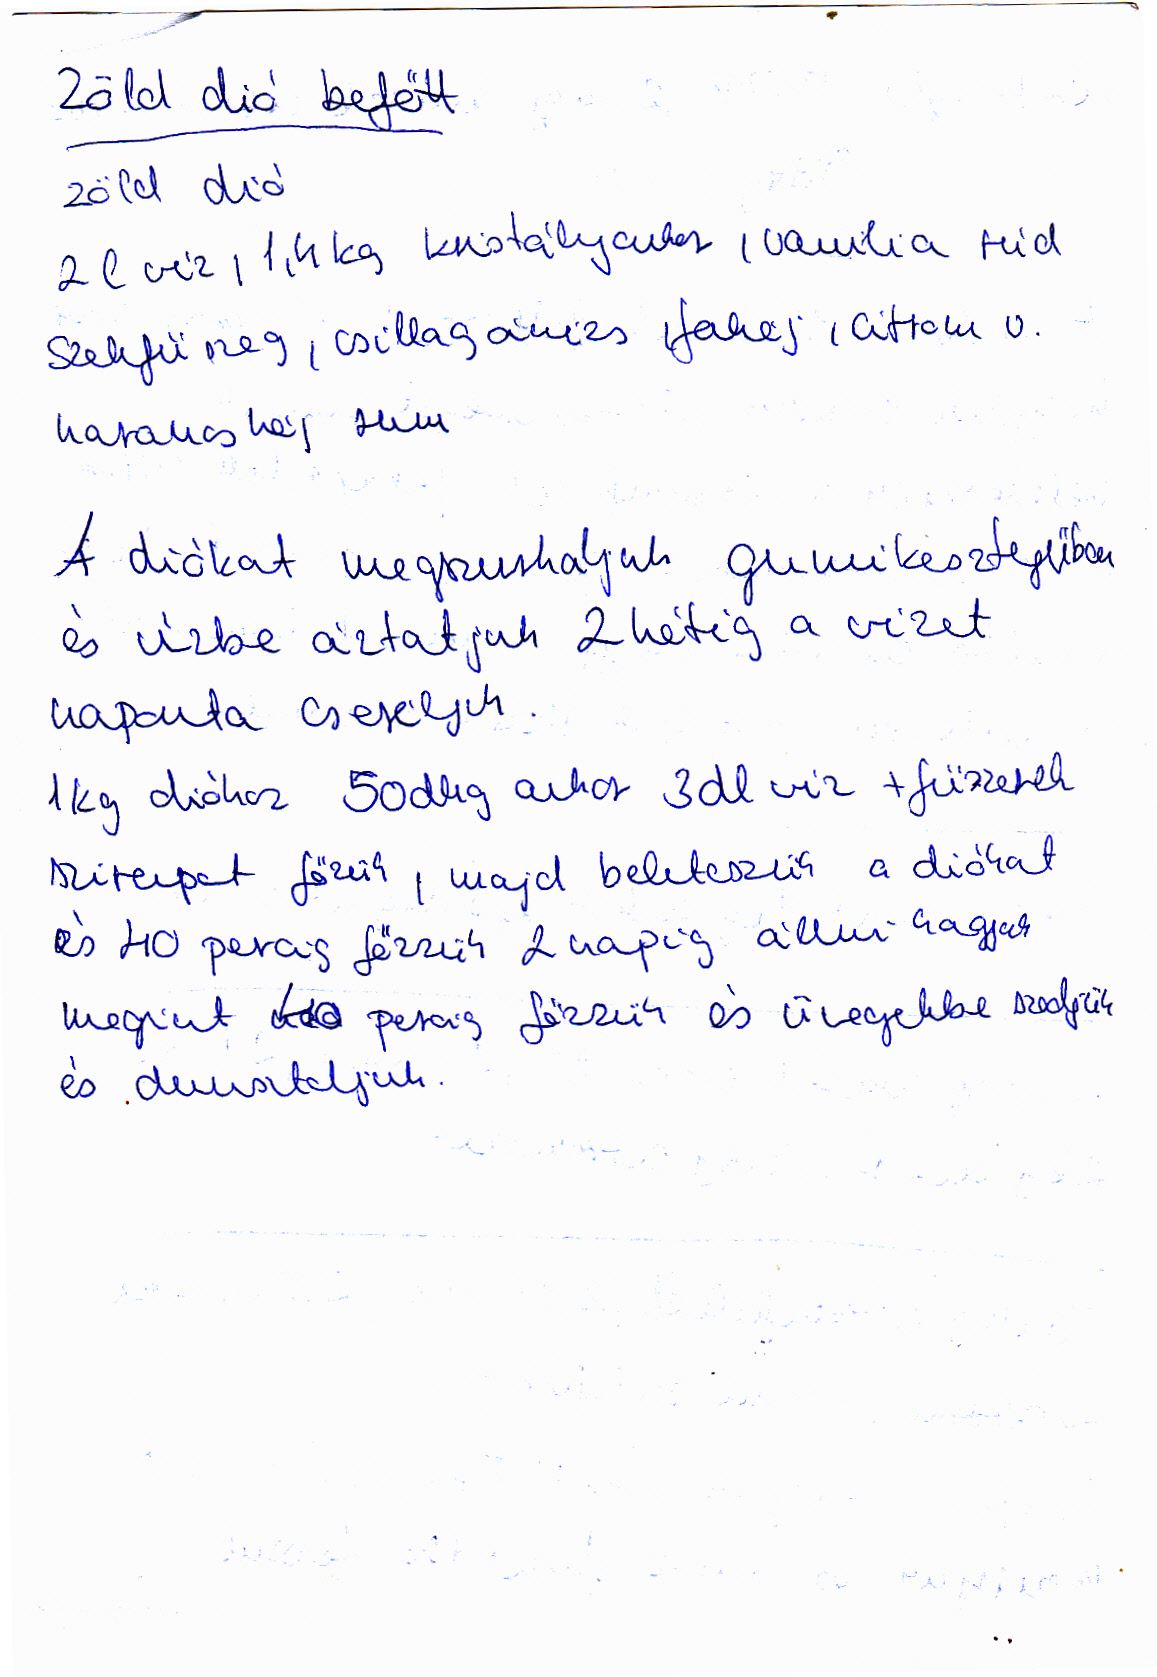 Zöld dió befőtt
zöld dió
2 l víz, 1,4 kg kristálycukor, vanilia rúd
szekfű szeg, csillagánizs, fahéj, citrom v.
narancshéj rum
A diókat megszurkáljuk gumikesztyűben
és vízbe áztatjuk 2 hétig a vizet
naponta cseréljük.
1 kg dióhoz 50 dkg cukor 3 dl víz + fűszerek
szirupot főzük, majd beleteszük a diókat
és 40 percig főzzük 2 napig állni hagyjuk
megint percig főzzük és üvegekbe szedjük
és dunsztoljuk.